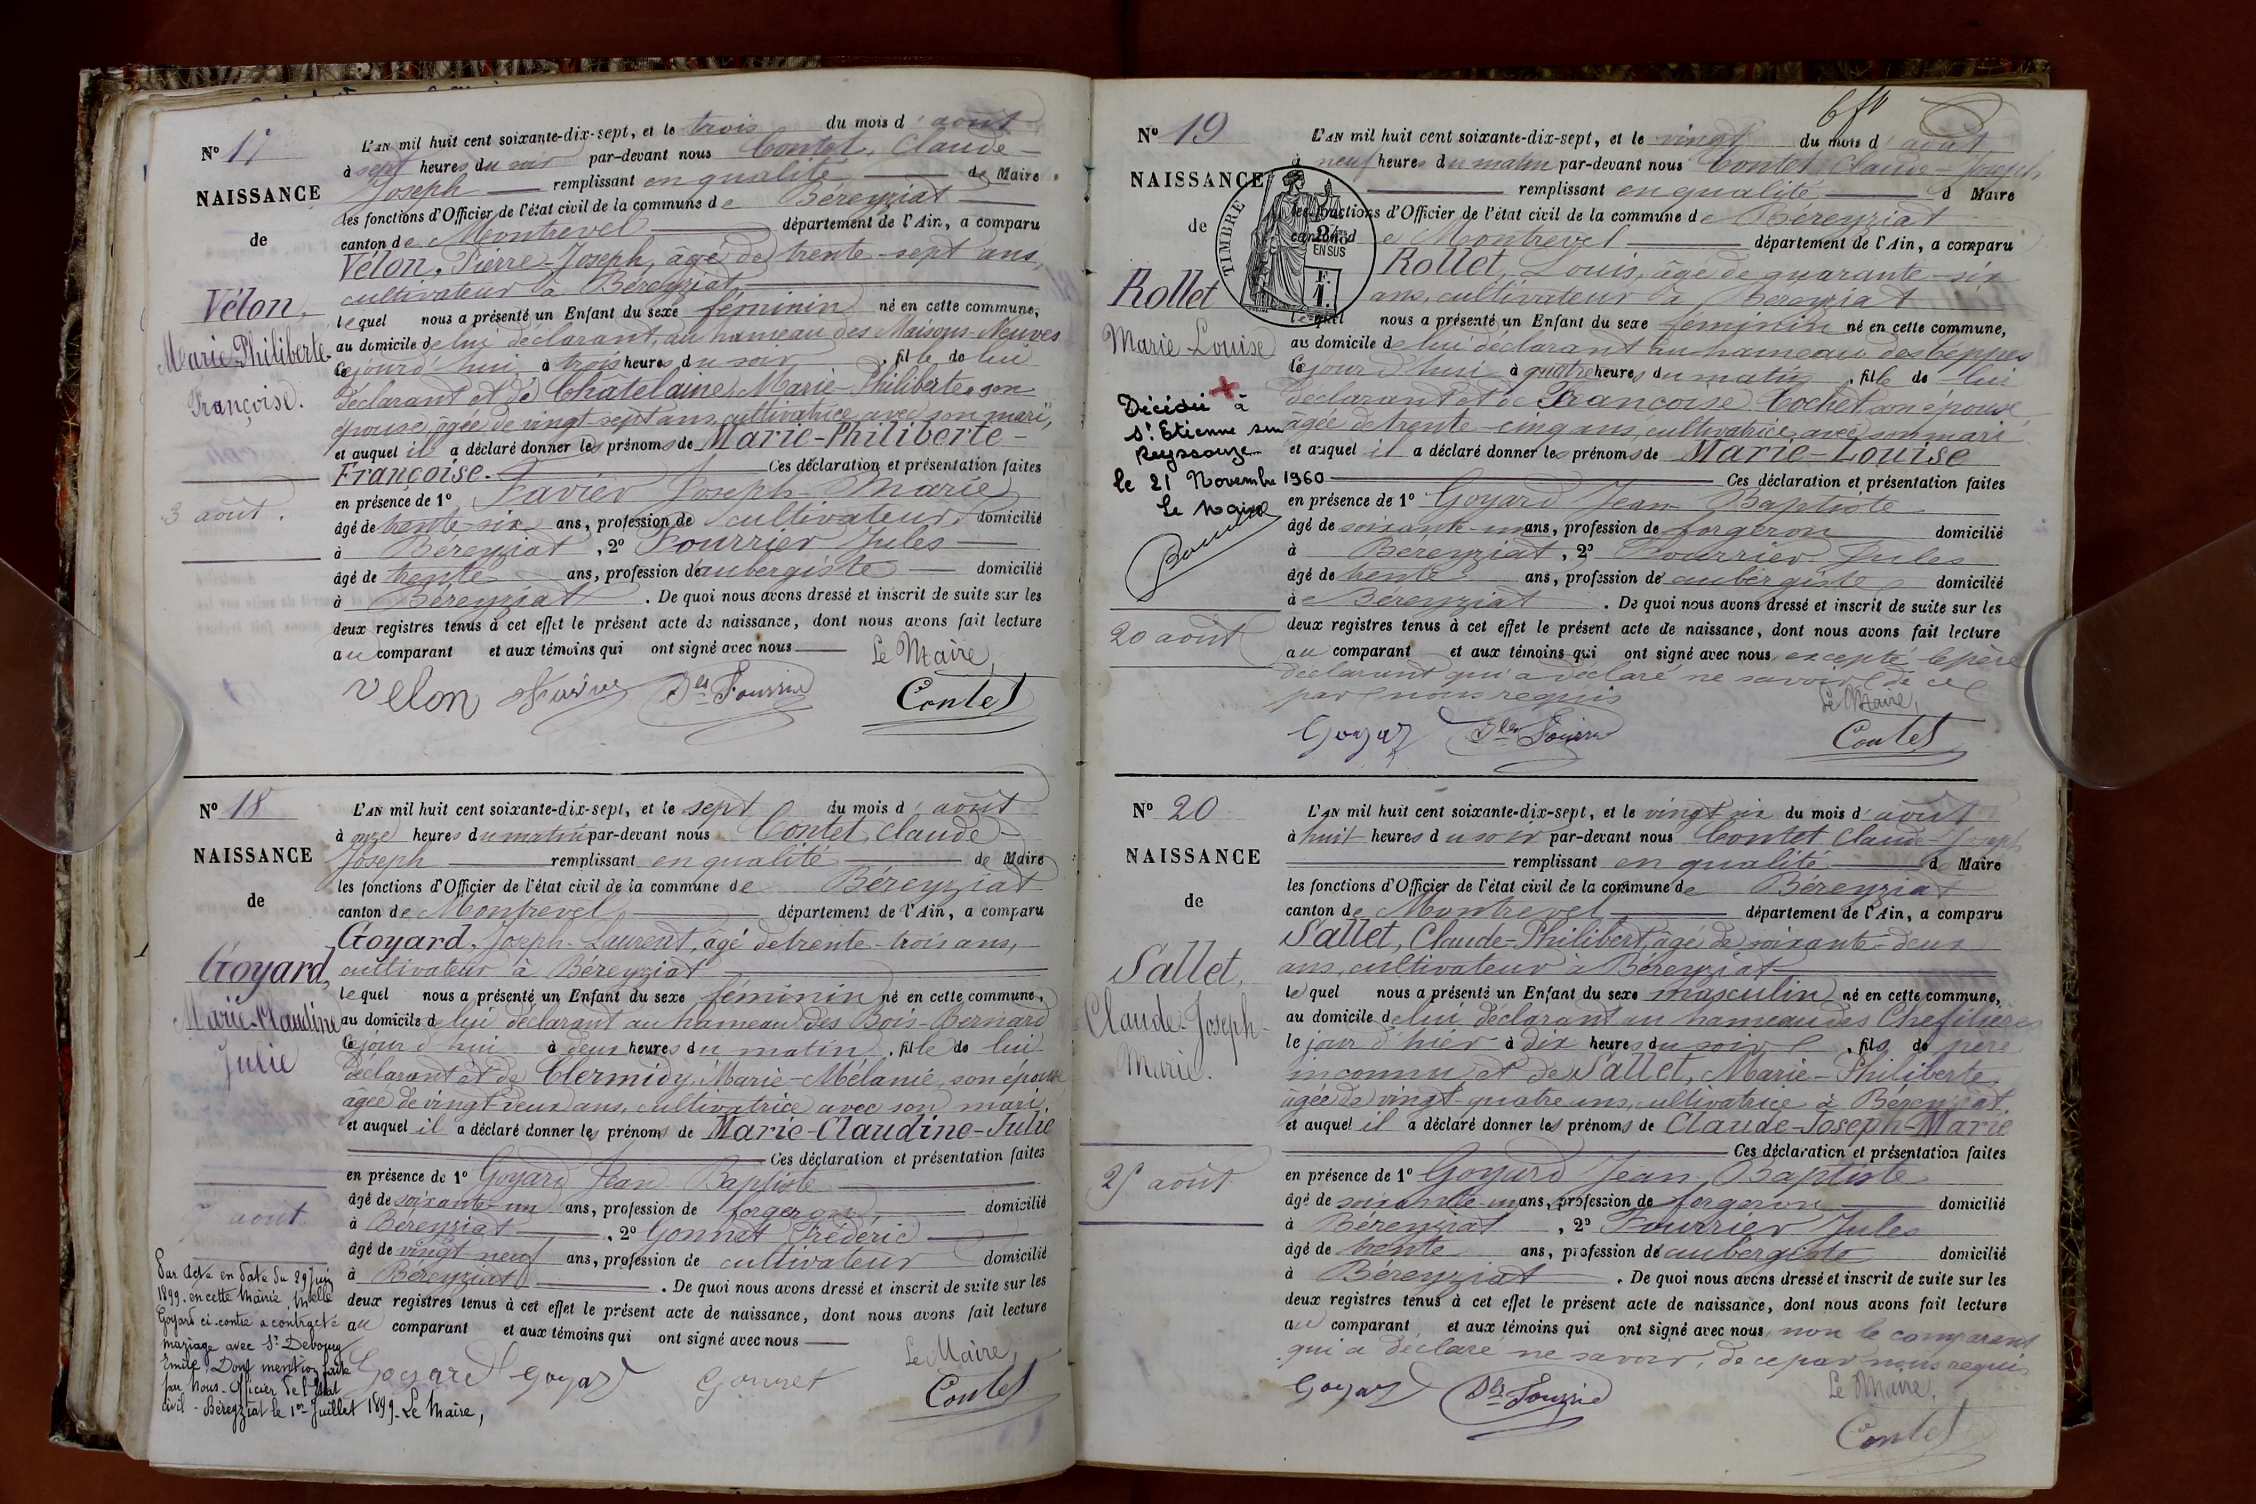 N° 17
NAISSANCE
de
Vélon,
Marie-Philiberte-
Françoise.
3 août.
L'AN mil huit cent soixante-dix-sept, et le trois du mois d'août
à sept heures du soir par-devant nous Contet, Claude-
Joseph remplissant en qualité de Maire
les fonctions d'Officier de l'état civil de la commune de Béreyziat
canton de Montrevel département de l'Ain, a comparu
Vélon, Pierre-Joseph, âgé de trente-sept ans,
cultivateur à Béreyziat
lequel nous a présenté un Enfant du sexe féminin né en cette commune,
au domicile de lui déclarant, au hameau des Maisons-Neuves
ce jour d'hui, à trois heures du soir, fille de lui
déclarant et de Chatelaine, Marie-Philiberte, son
épouse, âgée de vingt-sept ans, cultivatrice avec son mari,
et auquel il a déclaré donner les prénoms de Marie-Philiberte-
Françoise. Ces déclaration et présentation faites
en présence de 1° Favier Joseph-Marie
âgé de trente-six ans, profession de cultivateur, domicilié
à Béreyziat, 2° Fourrier Jules
âgé de trente ans, profession de aubergiste domicilié
à Béreyziat. De quoi nous avons dressé et inscrit de suite sur les
deux registres tenus à cet effet le présent acte de naissance, dont nous avons fait lecture
au comparant et aux témoins qui ont signé avec nous
Le Maire,
Velon Fourrier Contet
N° 18
NAISSANCE
de
Goyard,
Marie-Claudine
Julie
7 août.
L'AN mil huit cent soixante-dix-sept, et le sept du mois d'août
à onze heures du matin par-devant nous Contet, Claude-
Joseph remplissant en qualité de Maire
les fonctions d'Officier de l'état civil de la commune de Béreyziat
canton de Montrevel département de l'Ain, a comparu
Goyard, Joseph-Laurent, âgé de trente-trois ans,
cultivateur à Béreyziat
lequel nous a présenté un Enfant du sexe féminin né en cette commune,
au domicile de lui déclarant au hameau des Bois-Bernard
ce jour d'hui à deux heures du matin, fille de lui
déclarant et de Clermidy, Marie-Mélanie, son épouse
âgée de vingt-deux ans, cultivatrice avec son mari,
et auquel il a déclaré donner les prénoms de Marie-Claudine-Julie
Ces déclaration et présentation faites
en présence de 1° Goyard Jean Baptiste
âgé de soixante-un ans, profession de forgeron, domicilié
à Béreyziat, 2° Gonnet Frédéric
âgé de vingt neuf ans, profession de cultivateur domicilié
à Béreyziat. De quoi nous avons dressé et inscrit de suite sur les
deux registres tenus à cet effet le présent acte de naissance, dont nous avons fait lecture
au comparant et aux témoins qui ont signé avec nous
Le Maire,
Goyard Goyard Gonnet Contet
Par acte en date du 29 Juin
1899, en cette Mairie, Melle
Goyard ci-contre a contracté
mariage avec Sr Debourg
Emile. Dont mention faite
par Nous, Officier de l'Etat
civil - Béreyziat le 1er Juillet 1899. Le Maire,
N° 19
NAISSANCE
de
TIMBRE
2/10mes
EN SUS
F.
1.
Rollet
Marie-Louise
Décédée à
St Etienne sur
Reyssouze
le 21 Novembre 1960
Le Maire
20 août
L'AN mil huit cent soixante-dix-sept, et le vingt du mois d'août
à neuf heures du matin par-devant nous Contet Claude-Joseph
remplissant en qualité d Maire
les fonctions d'Officier de l'état civil de la commune de Béreyziat
canton de Montrevel département de l'Ain, a comparu
Rollet, Louis, âgé de quarante-six
ans, cultivateur à Béreyziat
lequel nous a présenté un Enfant du sexe féminin né en cette commune,
au domicile de lui déclarant au hameau des Céppes
ce jour d'hui à quatre heures du matin, fille de lui
déclarant et de Françoise Cochet son épouse
âgée de trente-cinq ans, cultivatrice avec son mari
et auquel il a déclaré donner les prénoms de Marie-Louise
Ces déclaration et présentation faites
en présence de 1° Goyard Jean Baptiste
âgé de soixante-un ans, profession de forgeron domicilié
à Béreyziat, 2° Fourrier Jules
âgé de trente ans, profession de aubergiste domicilié
à Béreyziat. De quoi nous avons dressé et inscrit de suite sur les
deux registres tenus à cet effet le présent acte de naissance, dont nous avons fait lecture
au comparant et aux témoins qui ont signé avec nous, excepté le père
déclarant qui a déclaré ne savoir de ce
par nous requis
Le Maire,
Goyard Fourrier Contet
N° 20
NAISSANCE
de
Sallet,
Claude-Joseph-
Marie.
25 août
L'AN mil huit cent soixante-dix-sept, et le vingt six du mois d'août
à huit heures du soir par-devant nous Contet Claude Joseph
remplissant en qualité de Maire
les fonctions d'Officier de l'état civil de la commune de Béreyziat
canton de Montrevel département de l'Ain, a comparu
Sallet, Claude-Philibert, âgé de soixante-deux
ans, cultivateur à Béreyziat
lequel nous a présenté un Enfant du sexe masculin né en cette commune,
au domicile de lui déclarant au hameau des Chefilières
le jour d'hier à dix heures du soir, fils de père
inconnu et de Sallet, Marie-Philiberte,
âgée de vingt-quatre ans, cultivatrice à Béreyziat,
et auquel il a déclaré donner les prénoms de Claude-Joseph-Marie
Ces déclaration et présentation faites
en présence de 1° Goyard Jean Baptiste
âgé de soixante-un ans, profession de forgeron domicilié
à Béreyziat, 2° Fourrier Jules
âgé de trente ans, profession de aubergiste domicilié
à Béreyziat. De quoi nous avons dressé et inscrit de suite sur les
deux registres tenus à cet effet le présent acte de naissance, dont nous avons fait lecture
au comparant et aux témoins qui ont signé avec nous, non le comparant
qui a déclaré ne savoir, de ce par nous requis
Le Maire,
Goyard Fourrier Contet